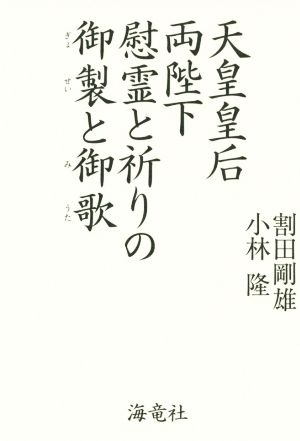 天皇皇后
両陛下
慰霊と祈りの
御製と御歌
ぎょ せい み うた
割田剛雄
小林 隆
海竜社